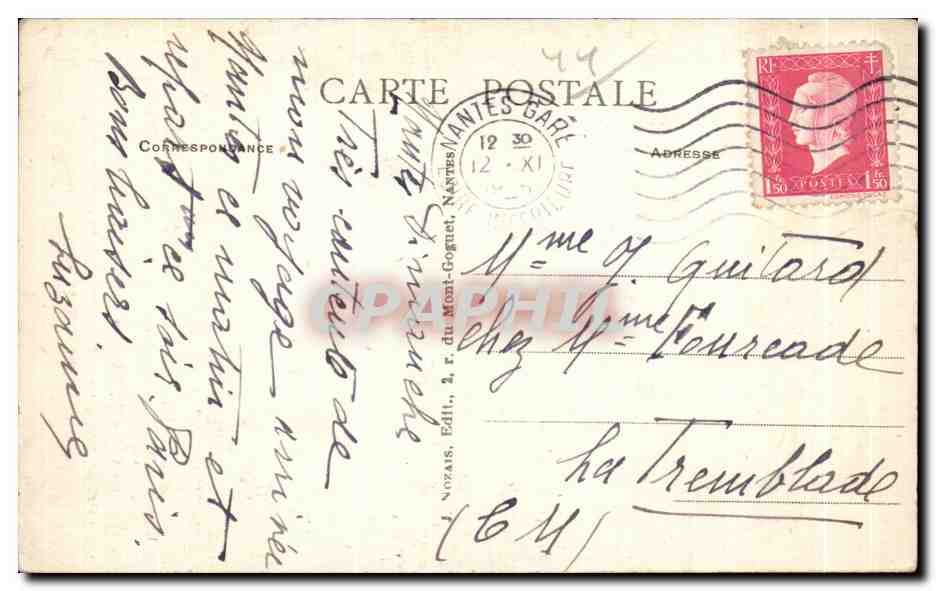 CARTE POSTALE
CORRESPONDANCE
ADRESSE
RF
1F50
POSTES
1F50
NANTES GARE
12 30
12 · XI
J. NOZAIS, Edit., 2, r. du Mont-Goguet, NANTES
44
Nantes Dimanche
Très contents de
mon voyage arrivée
Nantes ce matin et
repart ce soir Paris.
Bons baisers
Suzanne
Mme J. Guitard
chez Mme Fourcade
La Tremblade
(C M)
CPAPHIL